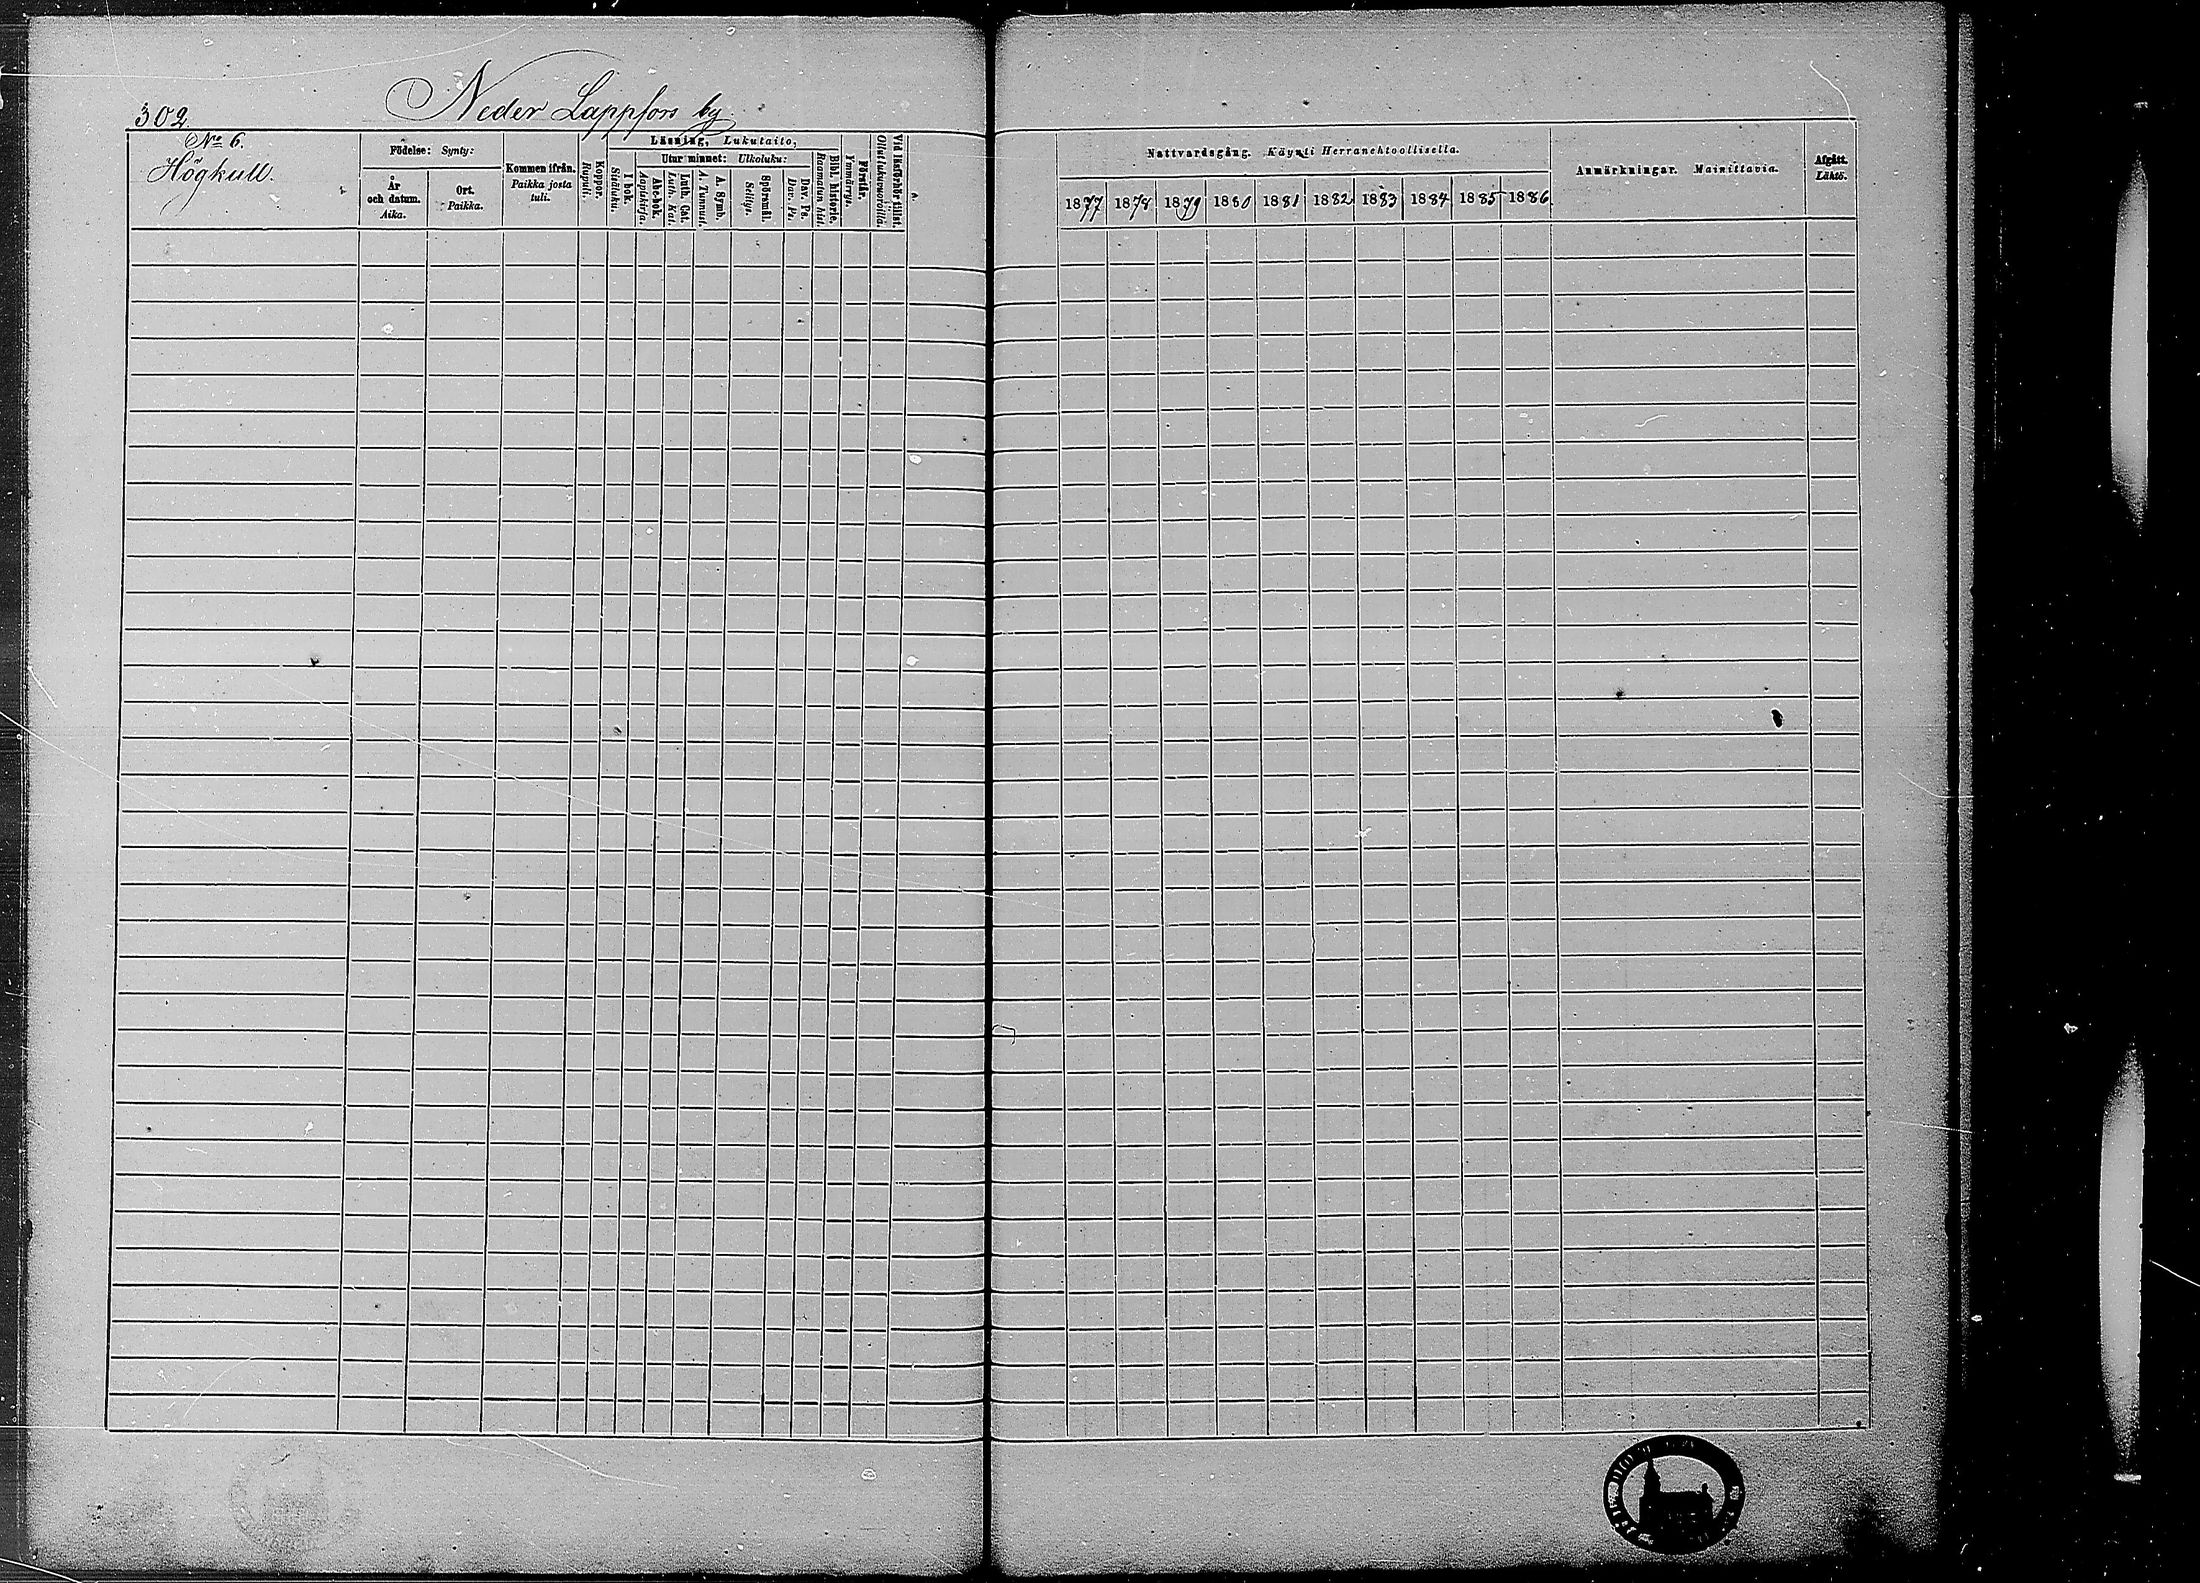 302.
Neder Lappfors by.
No 6.
Högkull.
Födelse: Synty:
År
och datum.
Aika.
Ort.
Paikka.
Kommen ifrån.
Paikka josta
tuli.
Koppor.
Rupuli.
Läsning, Lukutaito,
I bok.
Sisäluku.
Utur minnet: Ulkoluku:
Abc-bok.
Aapiskirja.
Luth. Cat.
Luth. Kat.
A. Symb.
A. Tunnust.
Spörsmål.
Selitys.
Dav. Ps.
Dav. Ps.
Bibl. historie.
Raamatun hist.
Förstår.
Ymmärrys.
Vid läsförhör tillst.
Ollut lukuvuoroilla.
Nattvardsgång. Käynti Herranehtoollisella.
1877 1878 1879 1880 1881 1882 1883 1884 1885 1886
Anmärkningar. Mainittavia.
Afgått.
Lähtö.